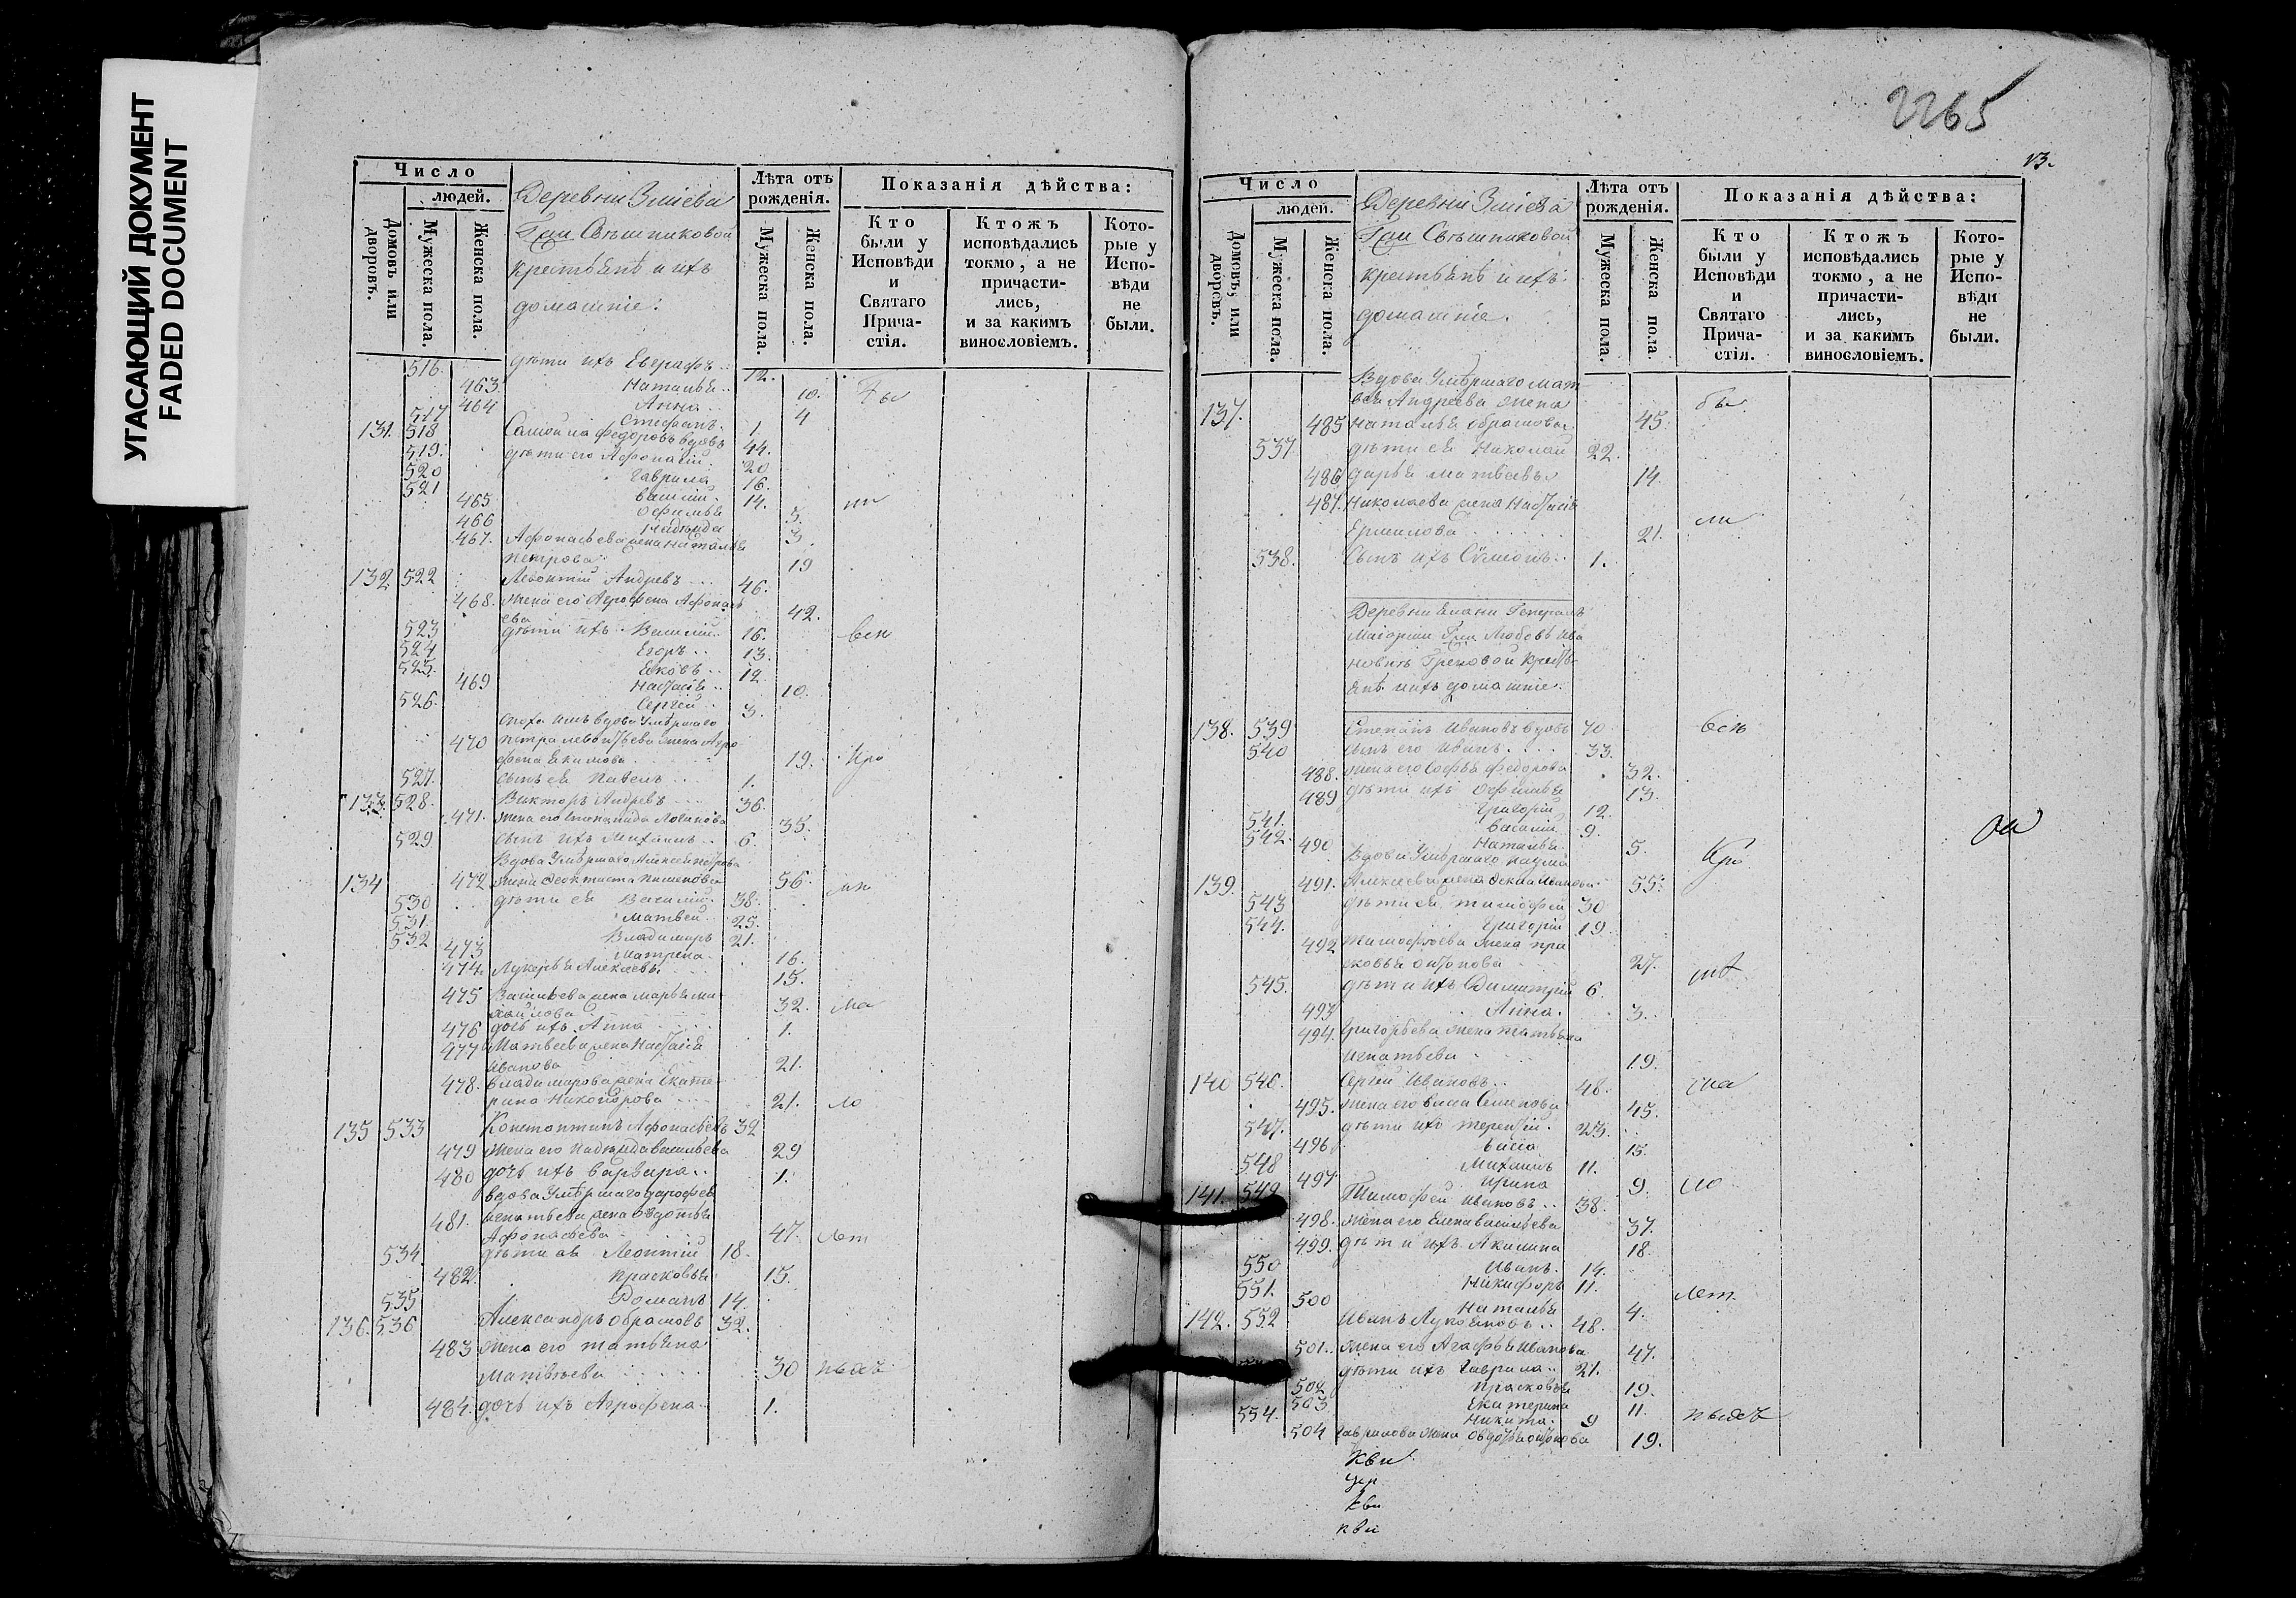 УГАСАЮЩИЙ ДОКУМЕНТ
FADED DOCUMENT
Число
людей.
Домовъ или дворовъ.
Мужеска пола.
Женска пола.
Деревни Змѣева
Гжи Свѣшниковой
крестьянѣ и ихъ
домашніе:
Лѣта отъ рожденія.
Мужеска пола.
Женска пола.
Показанія дѣйства:
Кто были у Исповѣди и Святаго Прича-стія.
Ктожъ исповѣдались токмо, а не причасти-лись, и за какимъ винословіемъ.
Кото-рые у Испо-вѣди не были.
516. дѣти ихъ Евграфъ 12.
463. Наталья 10.
464 Анна 4
517 Стефанъ 1.
131. 518 Федоровъ вдовъ 44.
519. дѣти его Афонасій 20
520 Гаврила 16.
521 Василій 14.
465 Офимья 5.
466 Надежда 3.
467. Афонасьева жена Наталья
Петрова 19
132 522 Леонтій Андревъ 46.
468. жена его Агрофена Афонась
ева 42.
523 дѣти ихъ Василій 16. всп
524 Егоръ 13.
525. Яковъ 12
469 Настасія 10.
526. Сергей 3.
сноха ихъ вдова умѣршаго
470 Петра Леонтьева жена Агро
фена Якимова 19. Про
527. сынъ ея Павелъ 1.
133. 528. Викторъ Андревъ 36.
471. жена его Степанида Логинова 35.
529 сынъ ихъ Михаилъ 6.
Вдова умѣршаго Алексея Петрова
134 472 жена Феоктиста Пименова 56.
530 дѣти ея Василій 38.
531 Матвей 25.
532 Владимиръ 21.
473 Матрена 16.
474. Лукерья Алексева 15.
475 Васильева жена Марья Ми
хайлова 32.
476 дочь ихъ Анна 1.
477 Матвеева жена Настасія
Иванова 21.
478. Владимирова жена Екате
рина Никонорова 21.
135 533 Константинъ Афонасьевъ 32
479 жена его Надежда Васильева 29
480 дочь ихъ Варвара 1.
вдова умѣршаго Дорофея
481. Игнатьева жена Овдотья
Афонасьева 47.
534. дѣти ея Леонтій 18.
482. Прасковья 15.
535 Романъ 14.
136. 536 Александръ Обрамовъ 32.
483 жена его Татьяна
Матвѣева 30
484. дочь ихъ Агрофена 1.
2265
13.
Число
людей.
Домовъ, или дворовъ.
Мужеска пола.
Женска пола.
Деревни Змѣева
Гжи Свѣшниковой
крестьянѣ и ихъ
домашніе.
Лѣта отъ рожденія.
Мужеска пола.
Женска пола
Показанія дѣйства:
Кто были у Исповѣди и Святаго Прича-стія.
Ктожъ исповѣдались токмо, а не причасти-лись, и за какимъ винословіемъ.
Кото-рые у Испо-вѣди не были.
Вдова умѣршаго Мат
вея Андреева жена бы
137. 485 Наталья Обрамова 45.
537. дѣти ея Николай 22.
486 Дарья Матвѣева 14.
487. Николаева жена Настасья
Ермилова 21. ли
538. Сынъ ихъ Сѵмеонъ 1.
Деревни Генералъ
Маіорши Гжи Любовь Ива
новнѣ Грековой кресть
янѣ и ихъ домашніе.
138. 539 Степанъ Ивановъ вдовъ 70 всп
540 сынъ его Иванъ 33.
488. жена его Софья Федорова 32.
489 дѣти ихъ Офимья 13.
541. Григорій 12.
542. Василій 9.
490 Наталья 5.
Вдова умѣршаго Наума
139. 491. Алексеева жена Фекла Иванова 55.
543 дѣти ея Тимофей 30
544. Григорій 19
492 Тимофеева жена Пра
сковья Антонова 27.
545. дѣти ихъ Димитрій 6.
493 Анна 3.
494. Григорьева жена Татьяна
Игнатьева 19.
140 546. Сергей Ивановъ 48.
495. жена его Васса Семенова 45.
547. дѣти ихъ Терентій 23.
496 Васса 15.
548 Михаилъ 11.
497 Ирина 9.
141. 549 Тимофей Ивановъ 38.
498. жена его Елена Васильева 37.
499. дѣти ихъ Акилина 18.
550 Иванъ 14.
551. Никифоръ 11.
500 Наталья 4.
142. 552 Иванъ Лукояновъ 48.
501. жена его Агафья Иванова 47.
дѣти ихъ Гаврила 21.
502 Прасковья 19.
503 Екатерина 11.
554. Никита 9
504 Гаврилова жена Овдотья Антонова 19.